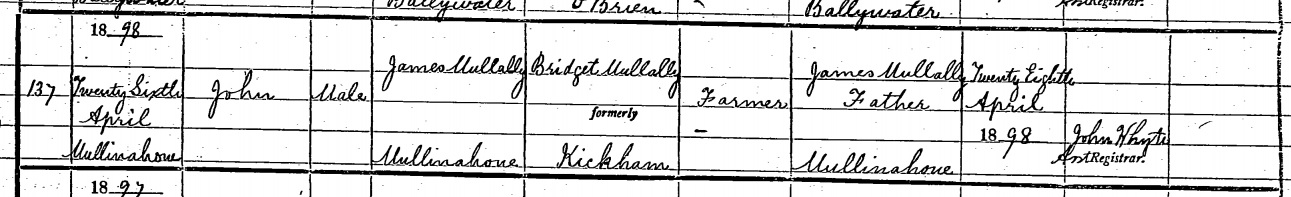 Ballywater O'Brien Ballywater
Registrar.
18 98
137 Twenty Sixth April Mullinahone John Male James Mullally Mullinahone Bridget Mullally formerly Kickham Farmer James Mullally Father Mullinahone Twenty Eighth April 18 98 John Whyte Asst Registrar.
18 97